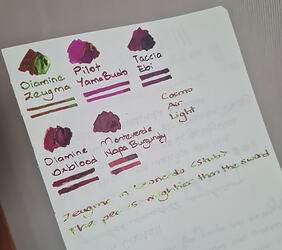 Diamine
Zeugma
Pilot
YamaBudo
Taccia
Ebi
Cosmo
Air
Light
Diamine
Oxblood
Monteverde
Napa Burgundy
Zeugma in Leonardo (stub)
The pen is mightier than the sword